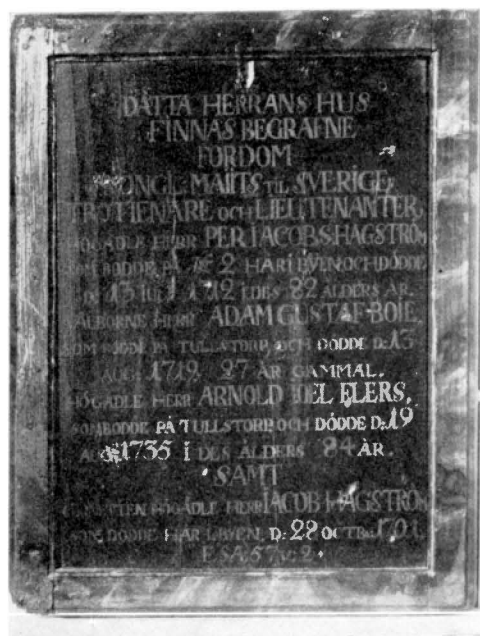 I
DÄTTA HERRANS HUS
FINNAS BEGRAFNE
FORDOM
KONGL: MAIITS TIL SVERIGE,
TROTIENARE OCH LIEUTENANTER,
HÖGADLE HERR PER IACOBS:HAGSTRÖM
SOM BODDE PÅ N: 2 HÄR I BYEN OCH DÖDDE
D: 13 IULI 1712 I DES 82 ALDERS ÅR.
ÄLBORNE HERR ADAM GUSTAF BOIE,
SOM BODDE PÅ TULLSTORP, OCH DÖDDE D: 13
AUG: 1719. 27 ÅR GAMMAL.
HÖGADLE HERR ARNOLD IOEL ELERS,
SOM BODDE PÅ TULLSTORP, OCH DÖDDE D: 19
1735 I DES ÅLDERS 84 ÅR.
SAMT
HÖGADLE HERR IACOB HAGSTRÖM
SOM DÖDDE HÄR I BYEN, D: 28 OCTBR:
ESA: 57 v: 2.